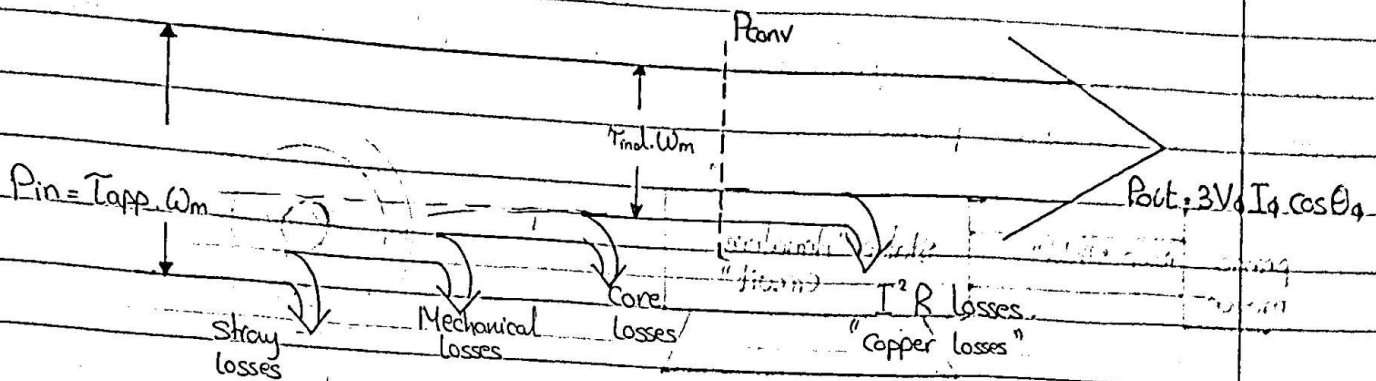 Pconv
τind.ωm
Pin = τapp.ωm
Pout = 3VϕIϕ cosθϕ
Stray
losses
Mechanical
losses
Core
losses
I²R losses
"Copper losses"